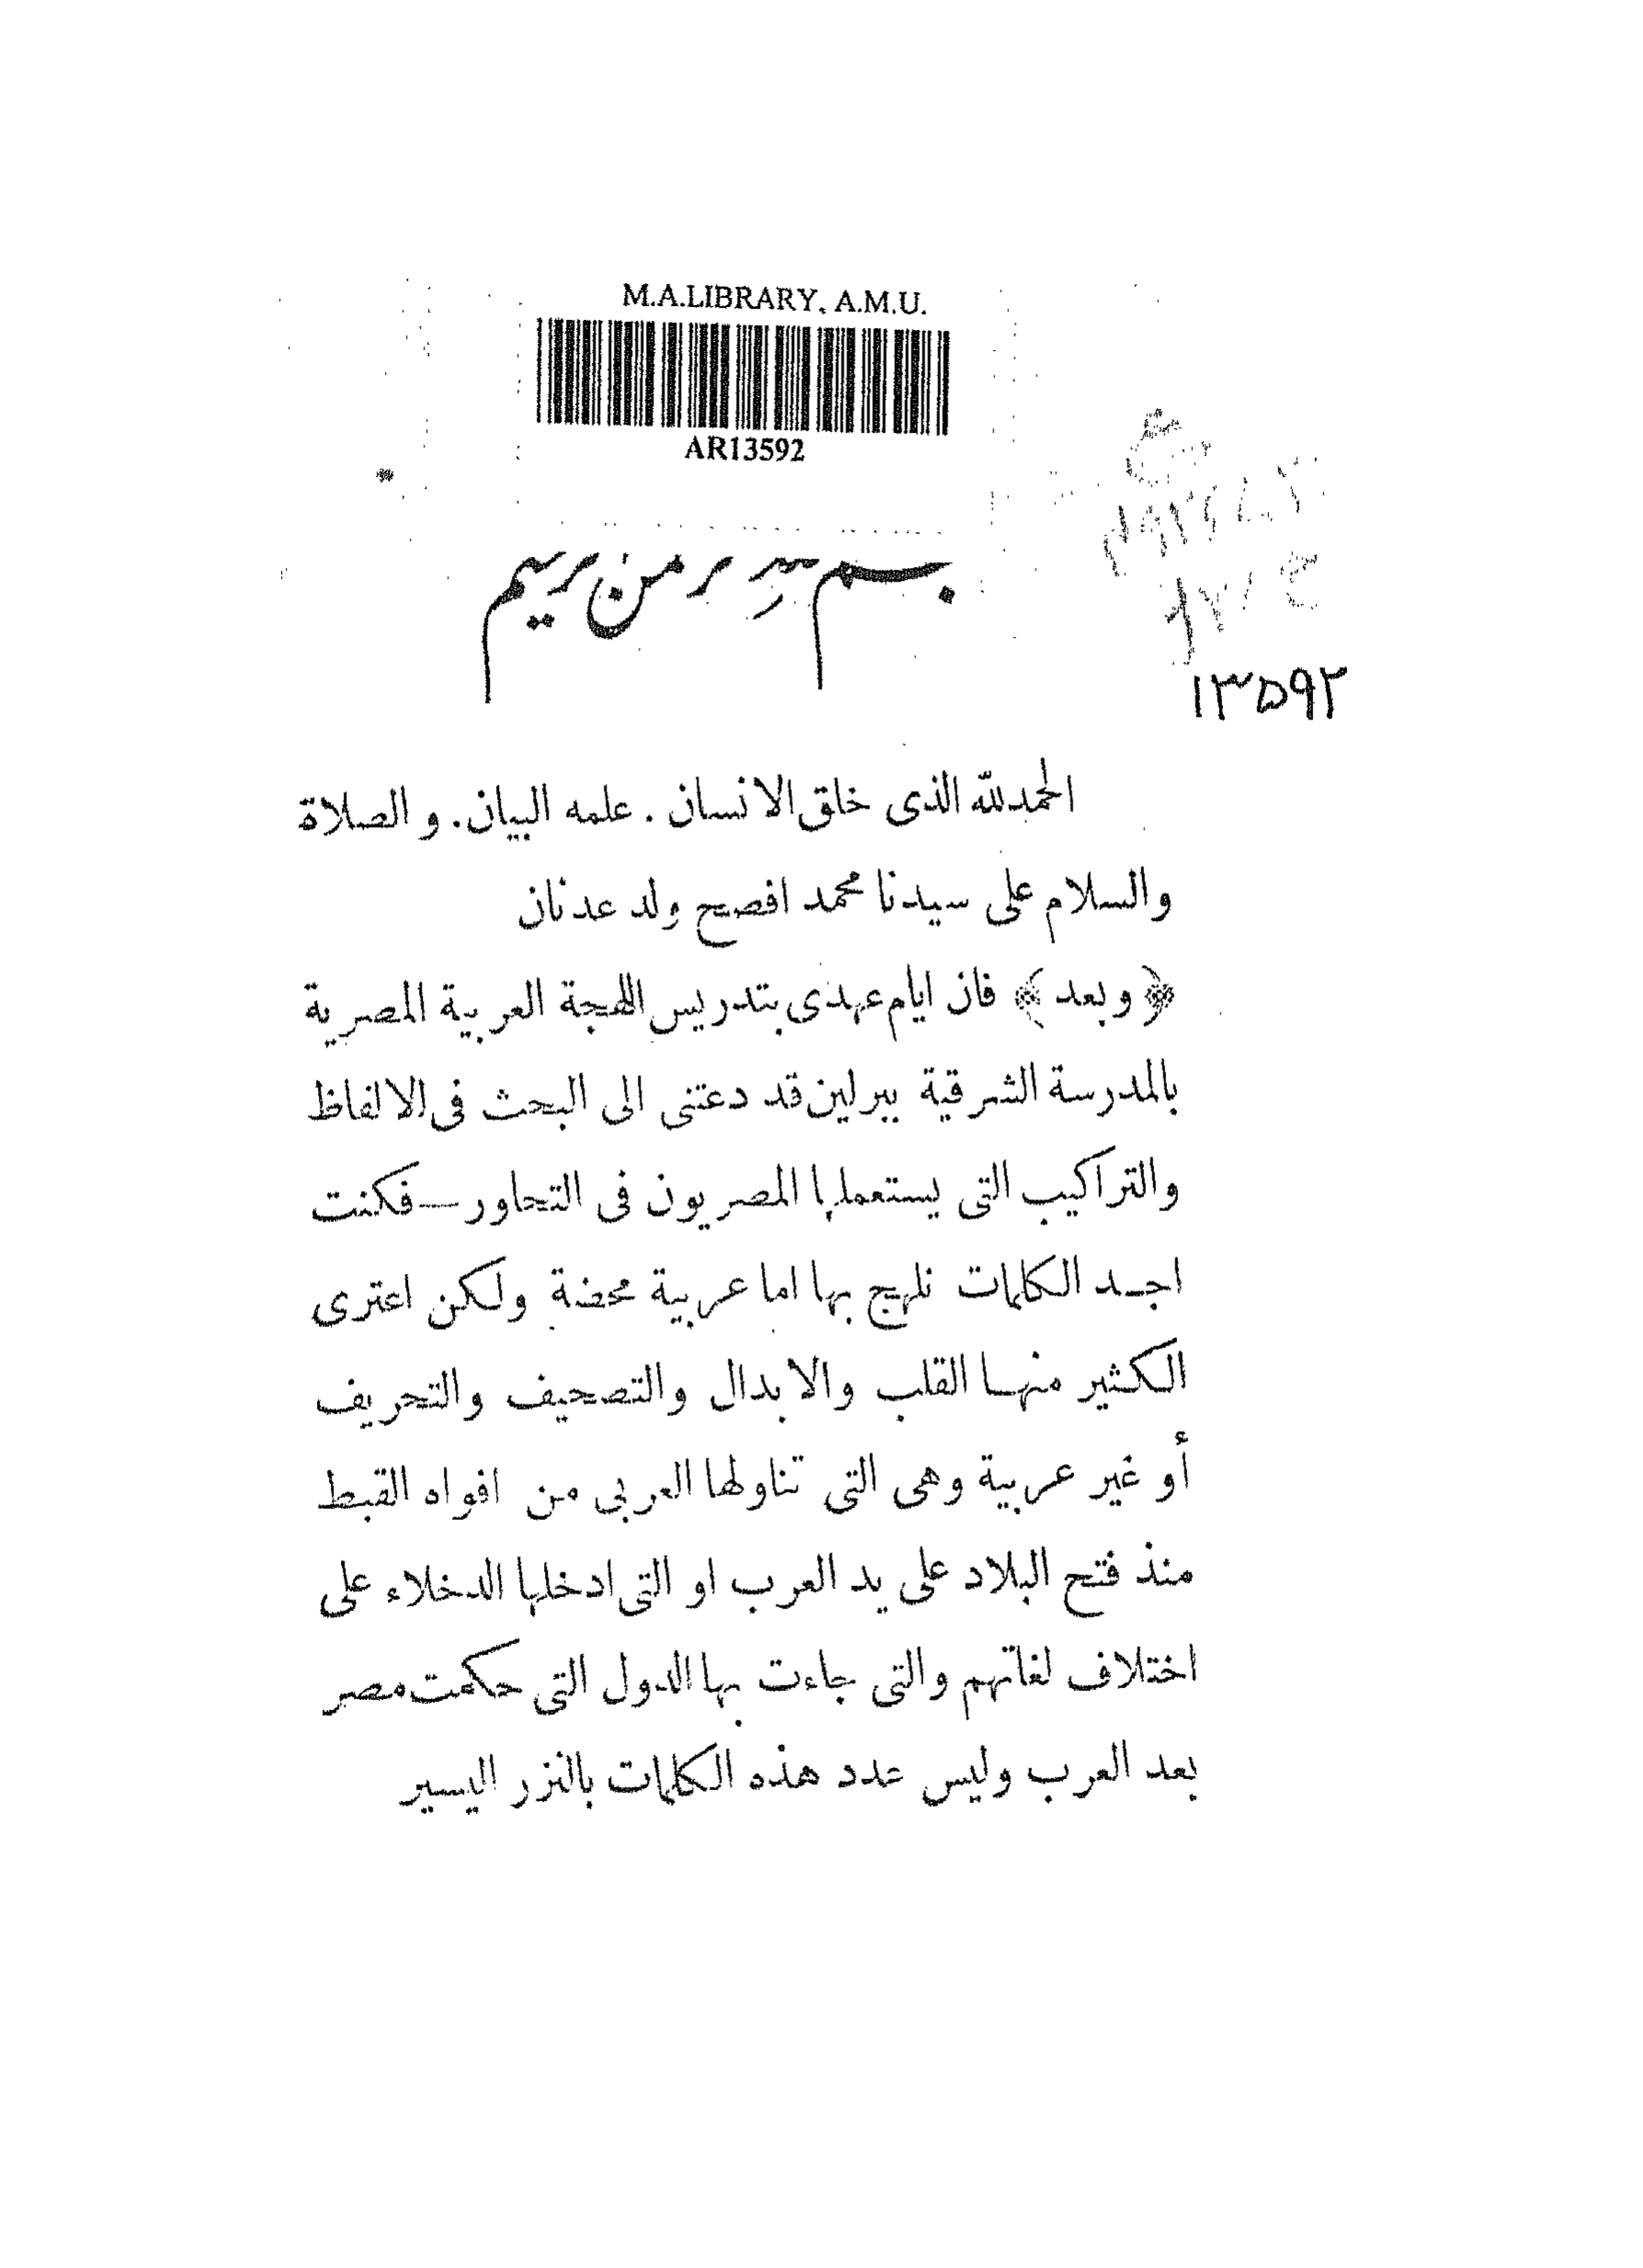 M.A.LIBRARY, A.M.U.
AR13592
بسم الله الرحمن الرحيم
١٣٥٩٢
الحمدلله الذى خلق الانسان . علمه البيان. و الصلاة
والسلام على سيدنا محمد افصح ولد عدنان
﴿ وبعد ﴾ فان ايام عهدى بتدريس اللهجة العربية المصرية
بالمدرسة الشرقية ببرلين قد دعتنى الى البحث فى الالفاظ
والتراكيب التى يستعملها المصريون فى التحاور — فكنت
اجد الكلمات نلهج بها اما عربية محضة ولكن اعترى
الكثير منها القلب والابدال والتصحيف والتحريف
أو غير عربية وهى التى تناولها العربى من افواه القبط
منذ فتح البلاد على يد العرب او التى ادخلها الدخلاء على
اختلاف لغاتهم والتى جاءت بها الدول التى حكمت مصر
بعد العرب وليس عدد هذه الكلمات بالنزر اليسير